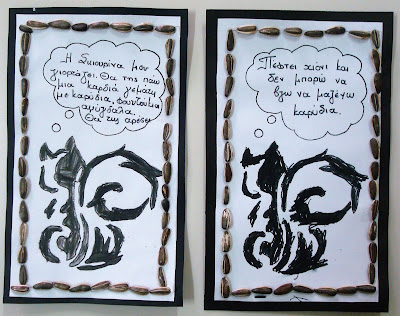 Η Σκιουρίνα μου
γιορτάζει. Θα της πάω
μια καρδιά γεμάτη
με καρύδια, φουντούκια
αμύγδαλα.
Θα της αρέσει
Πέφτει χιόνι και
δεν μπορώ να
βγω να μαζέψω
καρύδια.